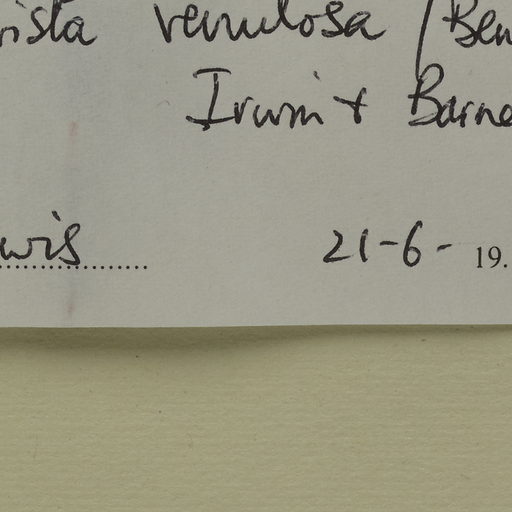 rista venulosa (Ben
Irwin + Barne
wis 21-6- 19.